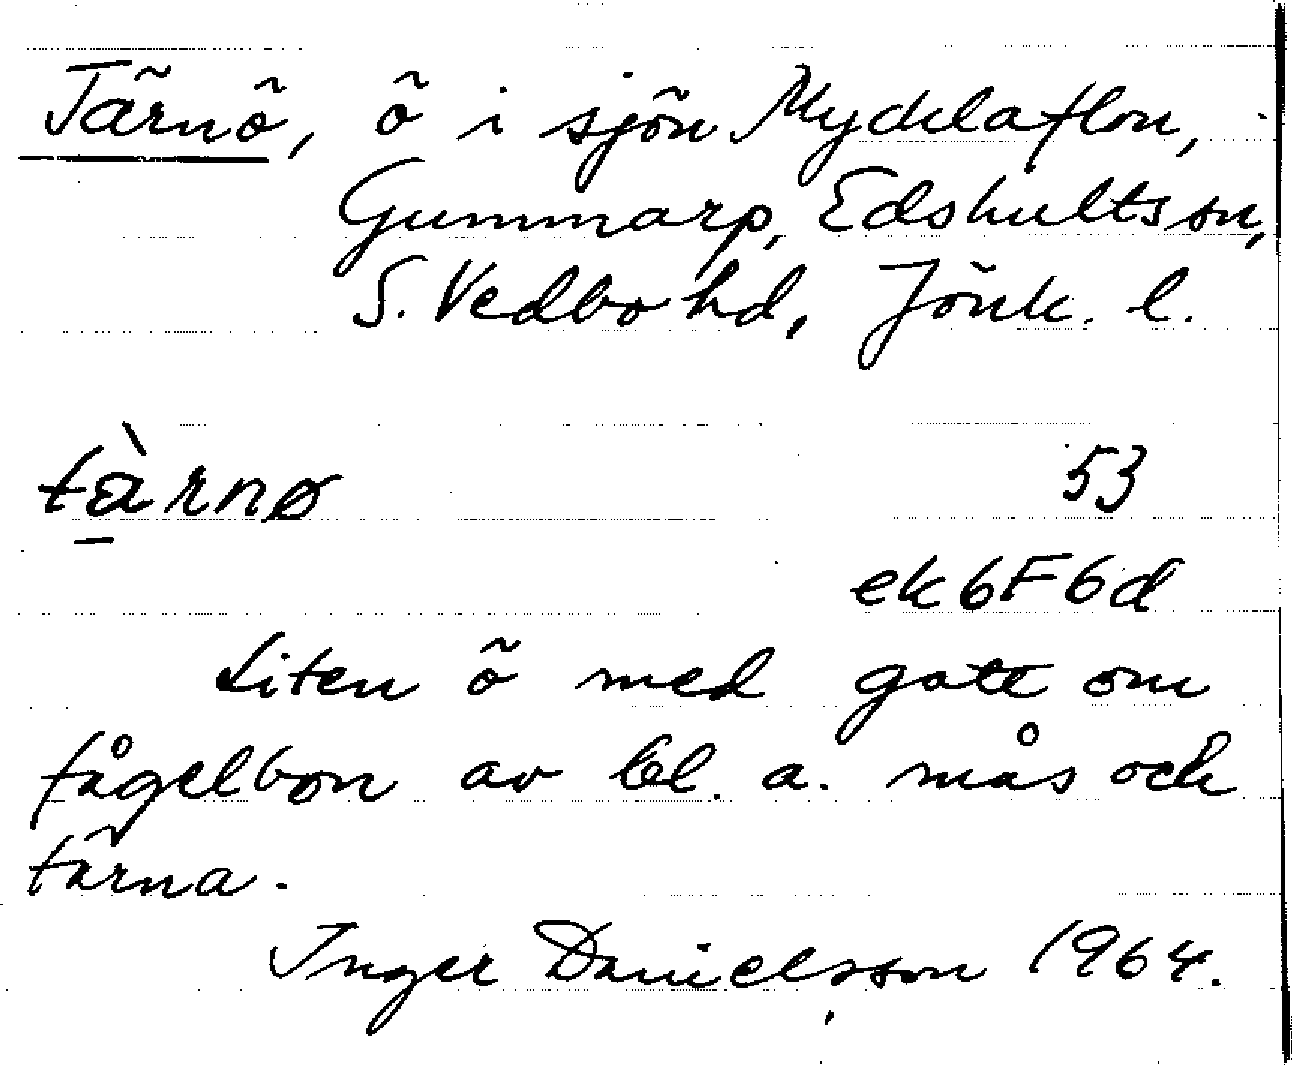 Tärnö, ö i sjön Mycklaflon,
Gummarp, Edshults sn,
S. Vedbo hd, Jönk. l.
tàrnø 53
ek 6F6d
Liten ö med gott om
fågelbon av bl. a. mås och
tärna.
Inger Danielsson 1964.